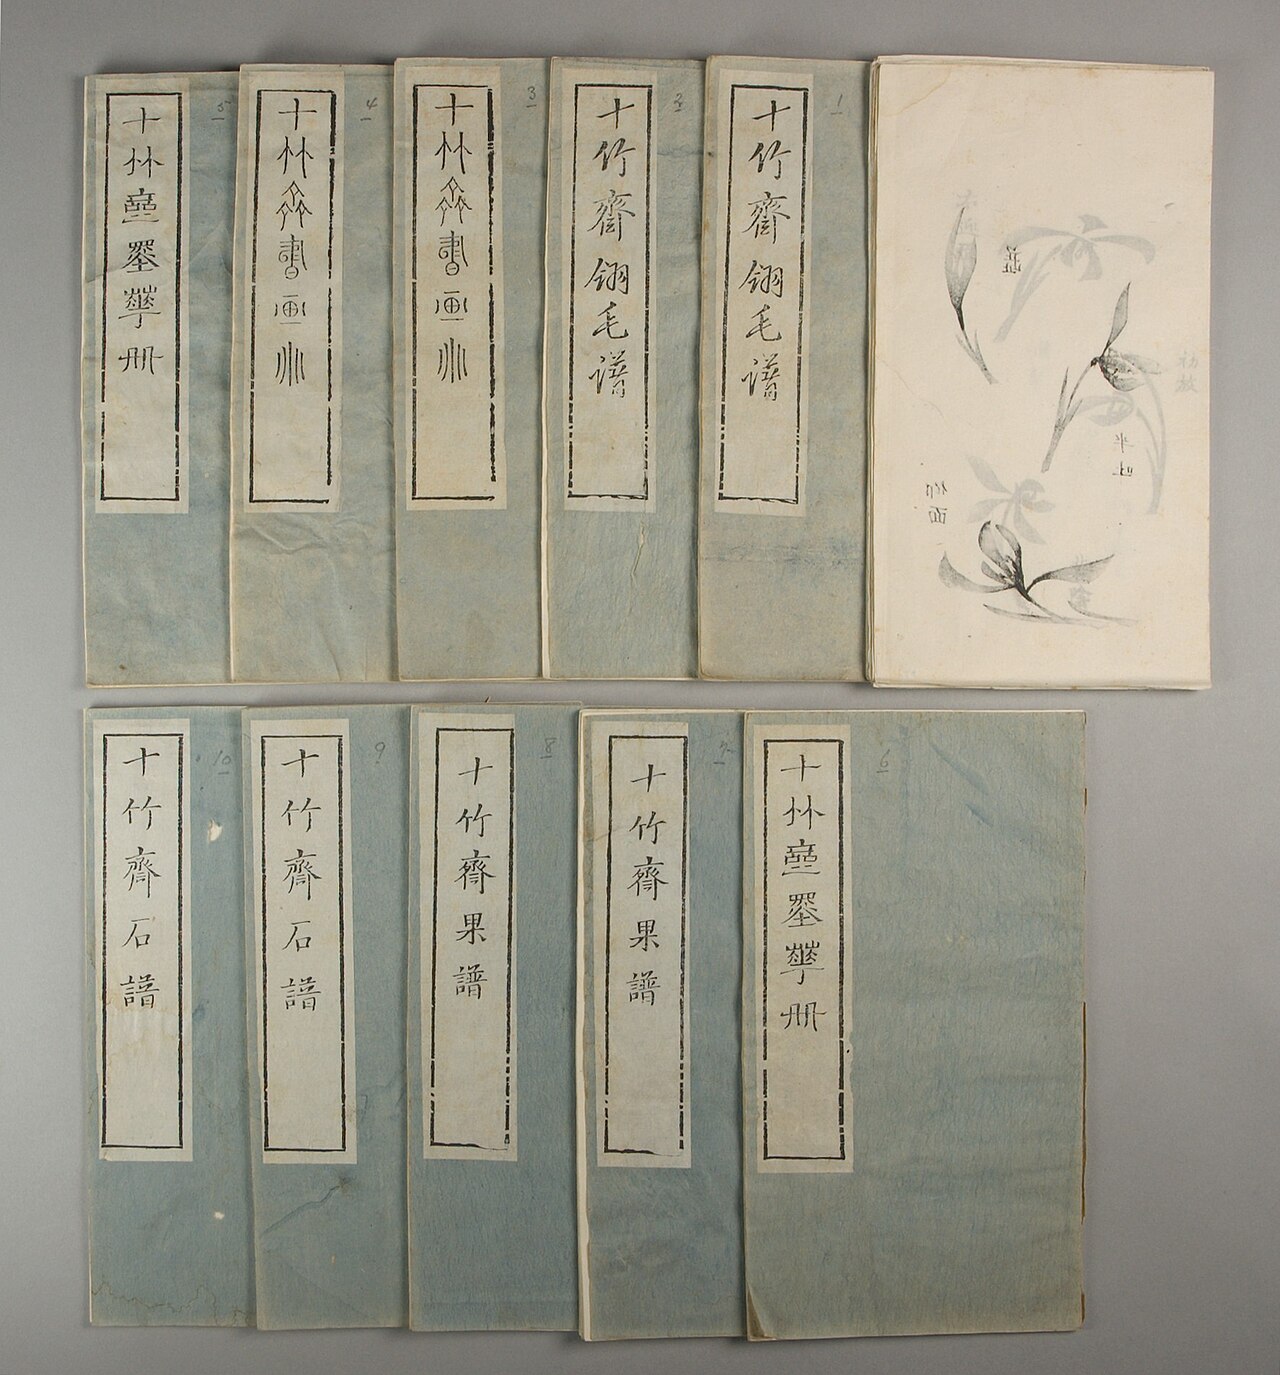 1
十竹齋翎毛譜
2
十竹齋翎毛譜
3
十竹齋書画册
4
十竹齋書画册
5
十竹齋墨華册
6
十竹齋墨華册
7
十竹齋果譜
8
十竹齋果譜
9
十竹齋石譜
10
十竹齋石譜
初放
半吐